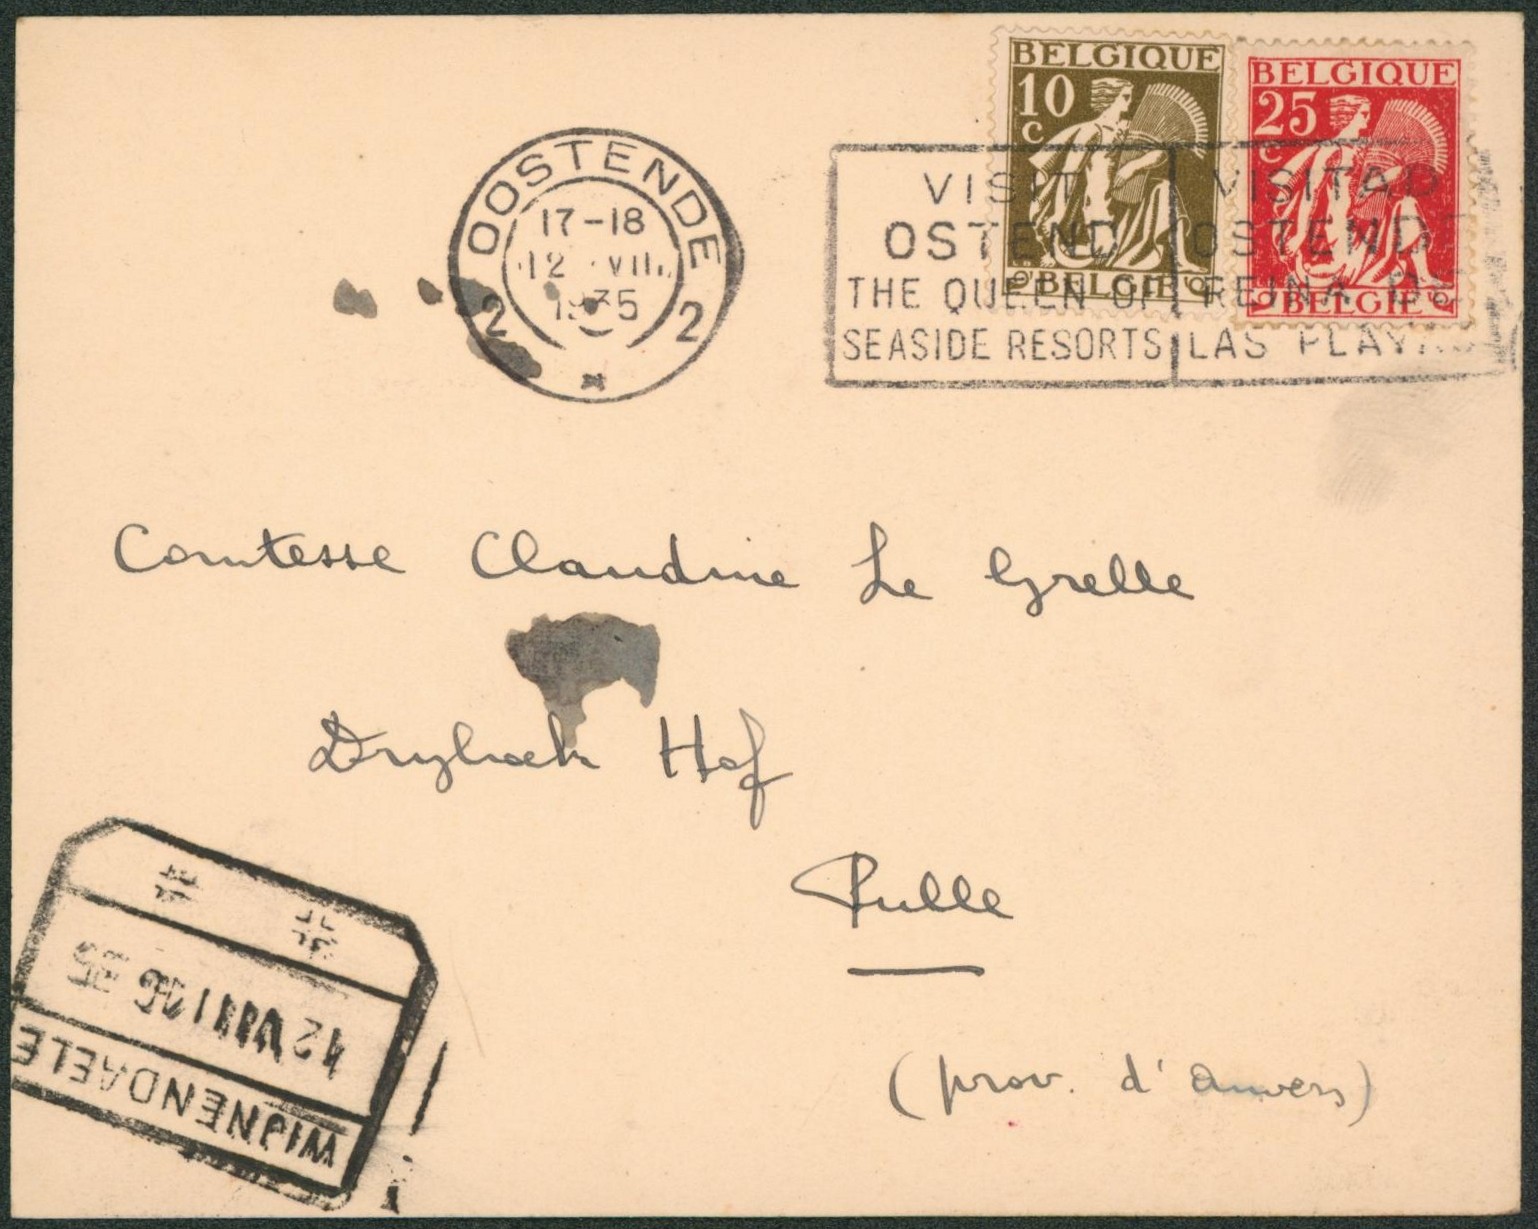 BELGIQUE
10
C
BELGIË
BELGIQUE
25
C
BELGIË
OOSTENDE
17-18
12 VIII
1935
2 2
VISIT
OSTEND
THE QUEEN OF
SEASIDE RESORTS
VISITAD
OSTENDE
REINA DE
LAS PLAYAS
Comtesse Claudine Le Grelle
Dryhoek Hof
Pulle
(prov. d'Anvers)
WIJNENDAELE
12 VIII 35